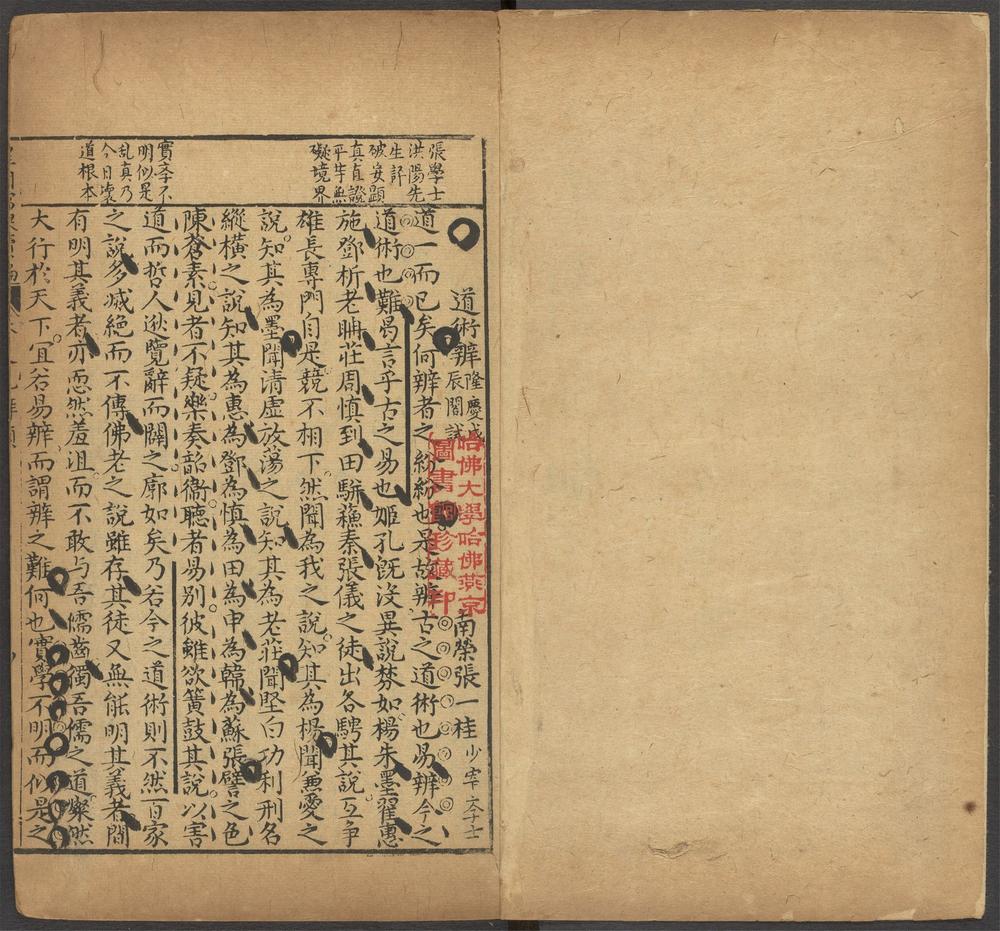 張學士
洪陽先
生評
破妄顯
真直證
平生無
礙境界
實李不
明似是
乱真乃
今日壞
道根本
道術辨
隆慶戊
辰閣試
南榮張一桂
少宰
學士
哈佛大學哈佛燕京
圖書館珍藏印
道一而已矣何辨者之紛紛也是故辨古之道術也易辨今之
道術也難曷言乎古之易也姬孔既沒異說棼如楊朱墨翟惠
施鄧析老聃莊周慎到田駢蘓秦張儀之徒出各騁其說互争
雄長專門自是競不相下然聞為我之說知其為楊聞兼愛之
說知其為墨聞清虛放蕩之說知其為老莊聞堅白功利刑名
縱橫之說知其為惠為鄧為慎為田為申為韓為蘇張譬之色
陳蒼素見者不疑樂奏韶衛聽者易別彼雖欲簧鼓其說以害
道而哲人逖覽辭而闢之廓如矣乃若今之道術則不然百家
之說多滅絕而不傳佛老之說雖存其徒又無能明其義者間
有明其義者亦恧然羞沮而不敢与吾儒齒獨吾儒之道燦然
大行於天下宜若易辨而謂辨之難何也實學不明而似是之